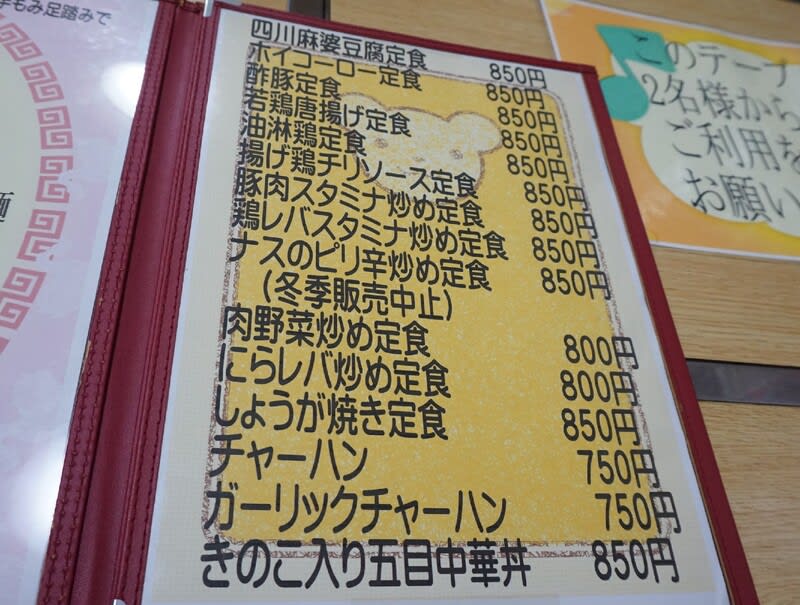 手もみ足踏みで
麺
四川麻婆豆腐定食 850円
ホイコーロー定食 850円
酢豚定食 850円
若鶏唐揚げ定食 850円
油淋鶏定食 850円
揚げ鶏チリソース定食 850円
豚肉スタミナ炒め定食 850円
鶏レバスタミナ炒め定食 850円
ナスのピリ辛炒め定食 850円
(冬季販売中止)
肉野菜炒め定食 800円
にらレバ炒め定食 800円
しょうが焼き定食 850円
チャーハン 750円
ガーリックチャーハン 750円
きのこ入り五目中華丼 850円
このテーブ
2名様から
ご利用を
お願い